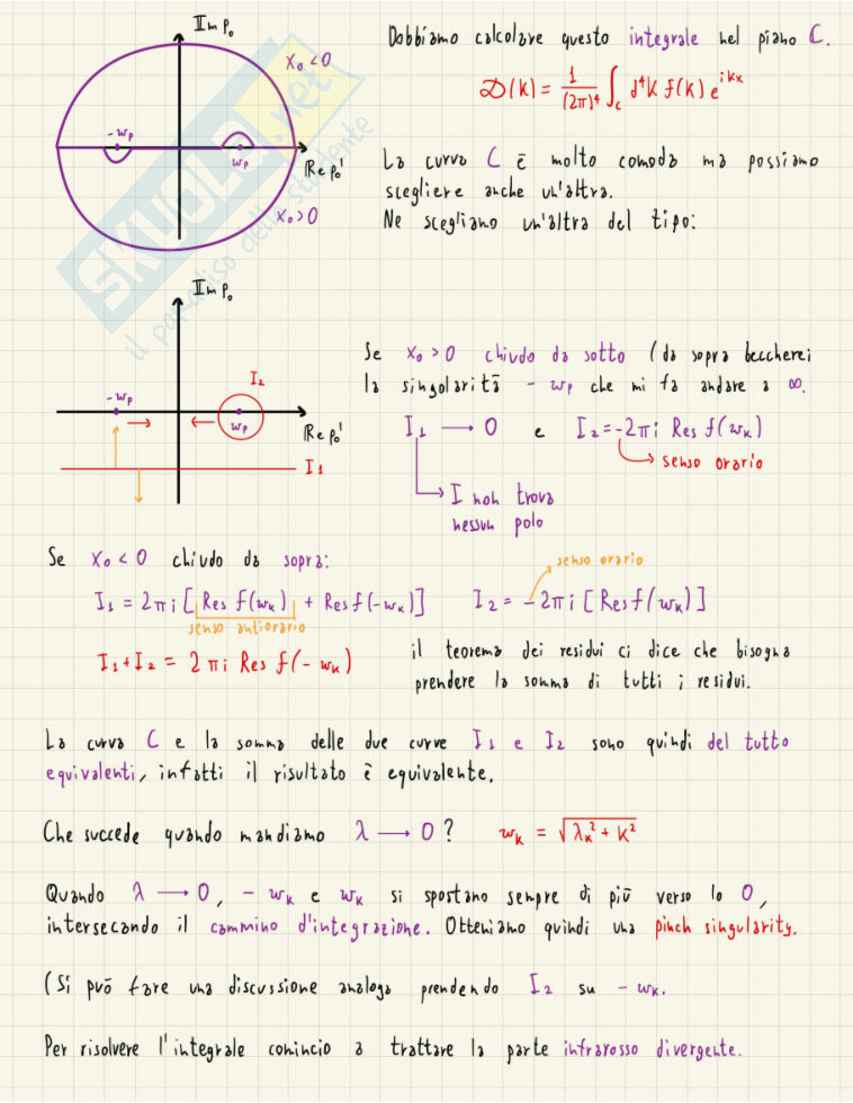 Im p₀
x₀ < 0
-wₚ
wₚ
Re p₀'
x₀ > 0
SKUOLA.net
il paradiso dello studente
Dobbiamo calcolare questo integrale nel piano C.
D(k) = 1/(2π)⁴ ∫_c d⁴k f(k) e^{ikx}
La curva C è molto comoda ma possiamo
scegliere anche un'altra.
Ne scegliamo un'altra del tipo:
Im p₀
I₂
-wₚ
wₚ
Re p₀'
I₁
Se x₀ > 0 chiudo da sotto (da sopra beccherei
la singolarità - wₚ che mi fa andare a ∞.
I₁ → 0 e I₂ = -2πi Res f(wₖ)
senso orario
I non trova
nessun polo
Se x₀ < 0 chiudo da sopra:
senso orario
I₁ = 2πi [Res f(wₖ) + Res f(-wₖ)] I₂ = -2πi [Res f(wₖ)]
senso antiorario
I₁ + I₂ = 2πi Res f(-wₖ)
il teorema dei residui ci dice che bisogna
prendere la somma di tutti i residui.
La curva C e la somma delle due curve I₁ e I₂ sono quindi del tutto
equivalenti, infatti il risultato è equivalente.
Che succede quando mandiamo λ → 0? wₖ = √(λₖ² + k²)
Quando λ → 0, - wₖ e wₖ si spostano sempre di più verso lo 0,
intersecando il cammino d'integrazione. Otteniamo quindi una pinch singularity.
(Si può fare una discussione analoga prendendo I₂ su - wₖ.
Per risolvere l'integrale comincio a trattare la parte infrarosso divergente.